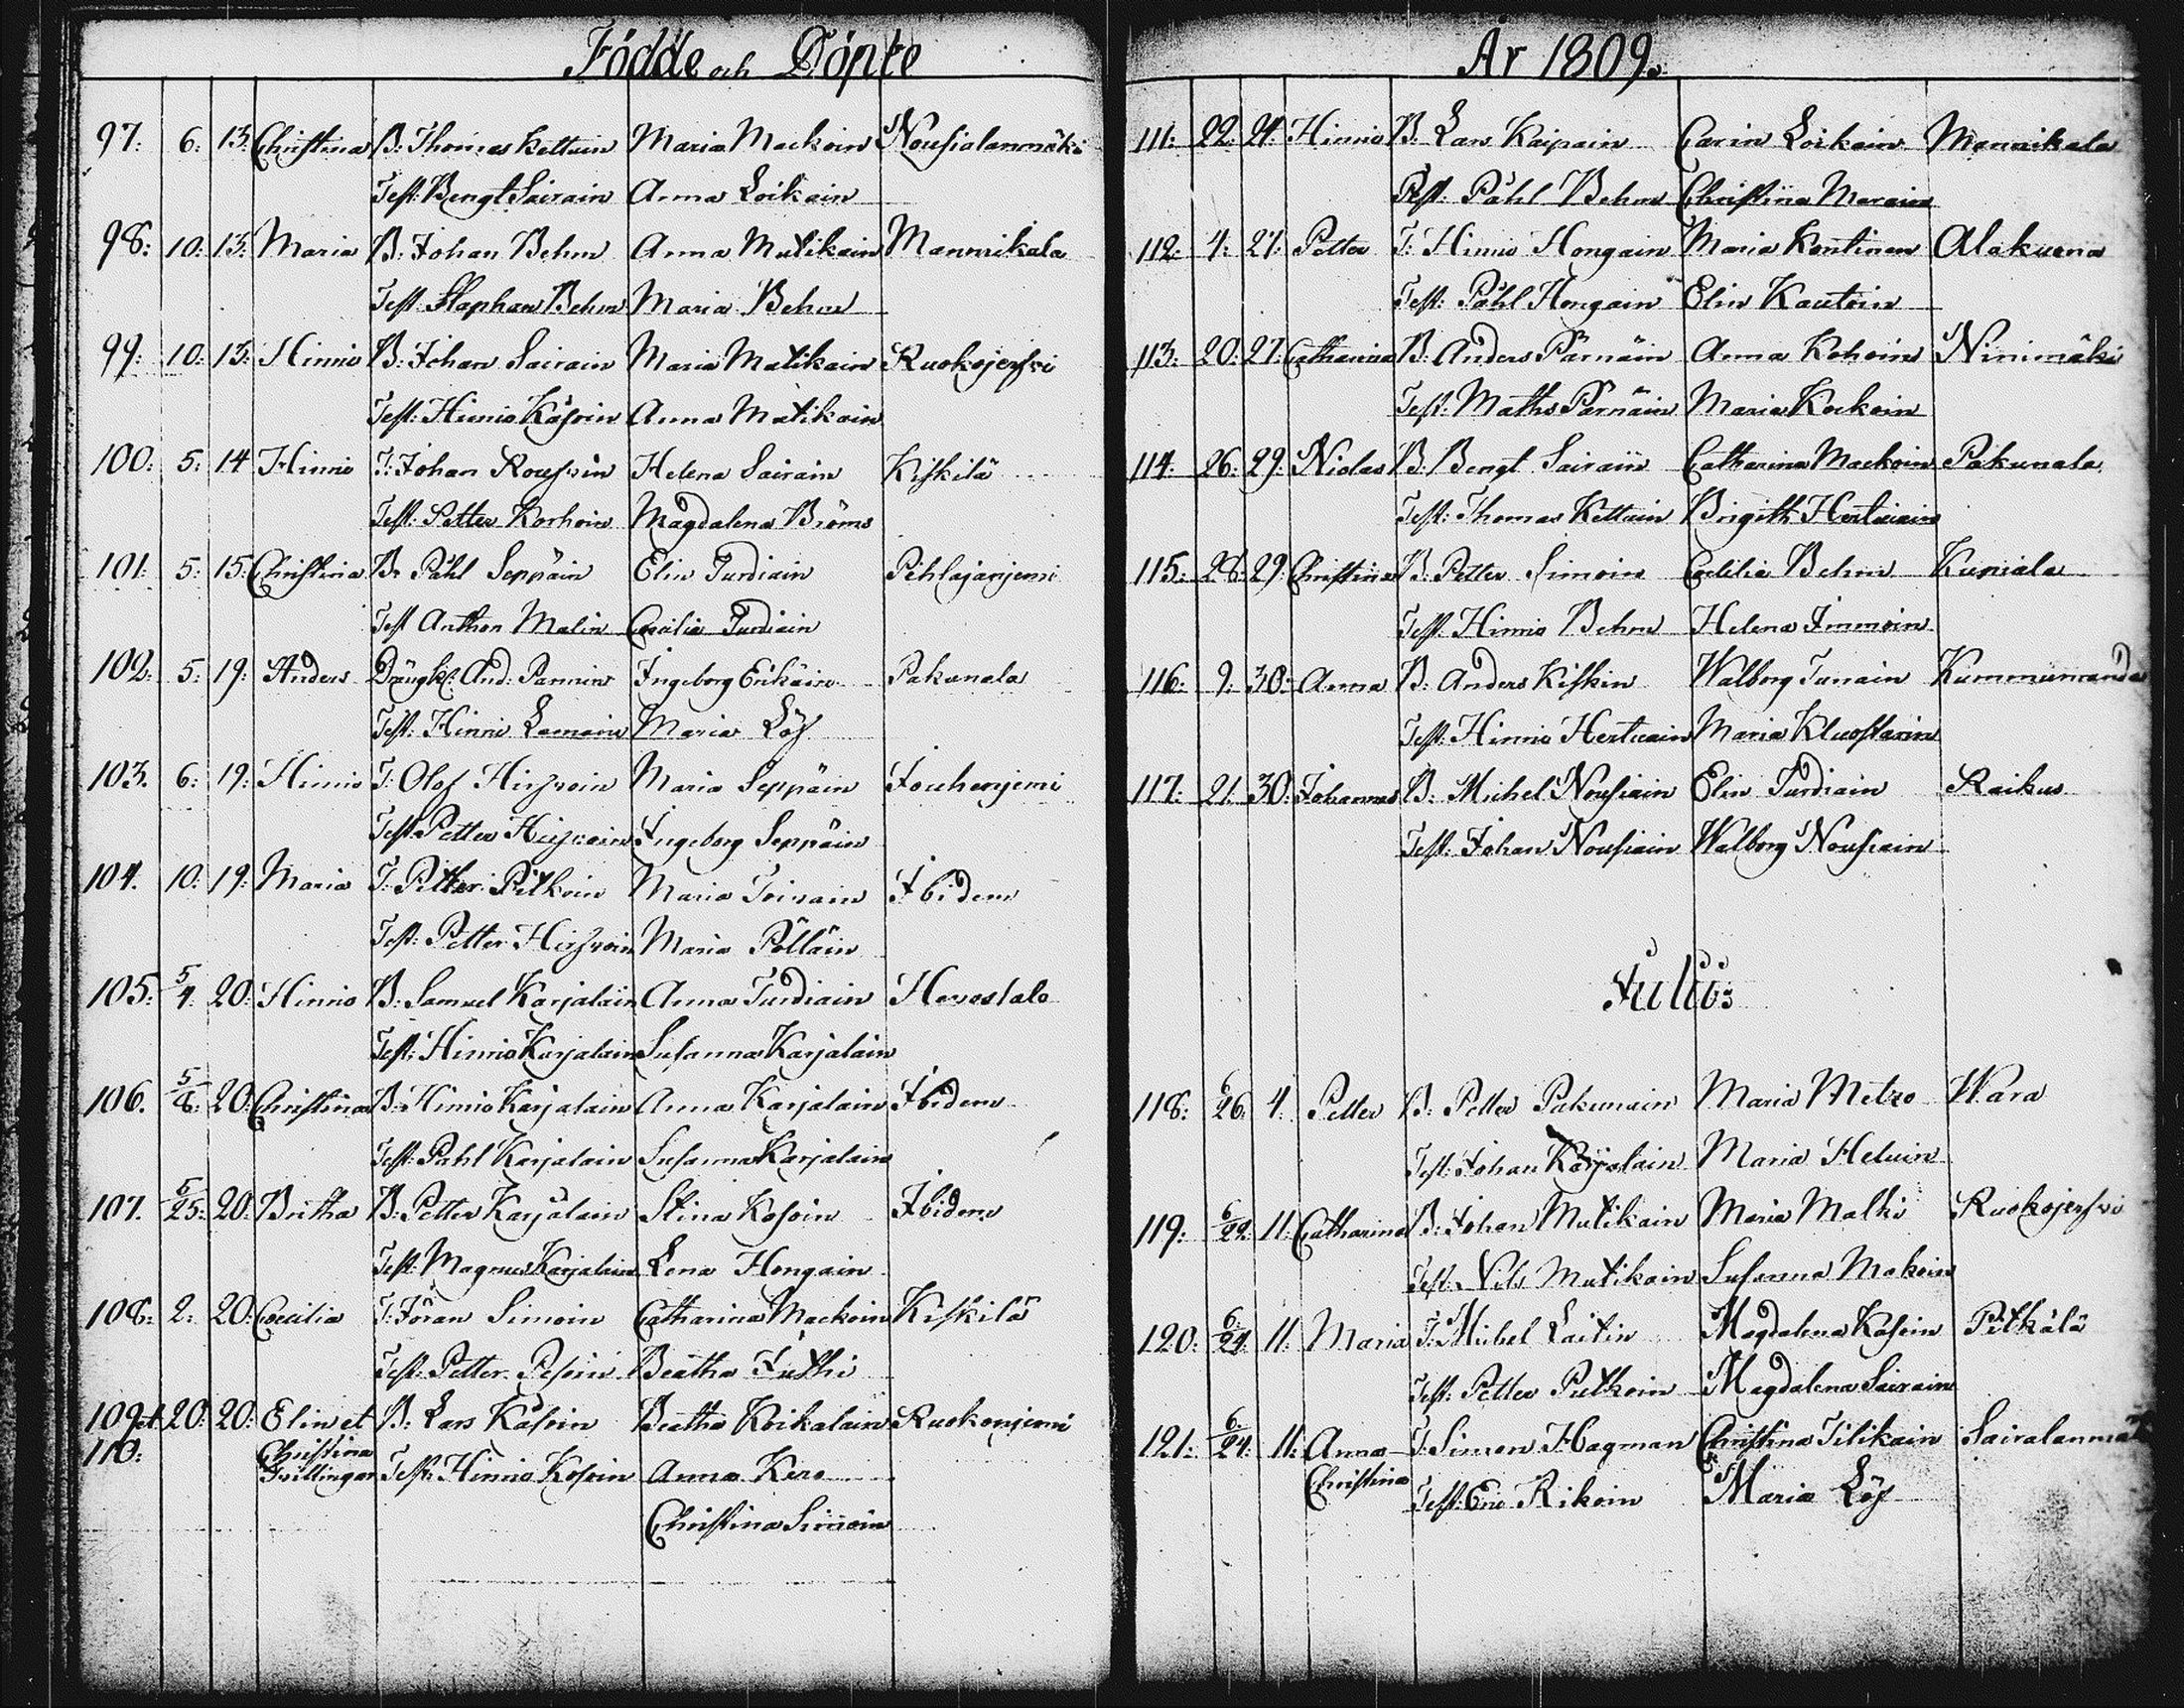 Födde och Döpte
97: 6: 13: Christina B: Thomas Kettuin Maria Mackoin Nousialanmäki
Test: Bengt Sairain Anna Loikain
98: 10: 13: Maria B: Johan Behm Anna Mutikain Mannikala
Test: Staphan Behm Maria Behm
99: 10: 13: Hinric B: Johan Sairain Maria Matikain Ruokojerfvi
Test: Hinric Käsoin Anna Matikain
100: 5: 14 Hinric T: Johan Helena Sairain Kiskilä
Test: Petter Korhoin Magdalena Bröms
101: 5: 15: Christina B: Påhl Seppäin Elin Turdiain Pihlajanjemi
Test Anthon Malin Cecilia Turdiain
102: 5: 19: Anders Drängk: And: Pannin Ingeborg Erikäin Pakunala
Test: Hinric Lamain Maria Löf
103. 6: 19: Hinric T: Olof Hirfvoin Maria Seppäin Jouhenjemi
Test: Petter Hirfvoin Ingeborg Seppäin
104. 10: 19: Maria T: Petter Pitkoin Maria Toivain Ibidem
Test: Petter Hirfvoin Maria Pölläin
105: 5/4: 20: Hinric B: Samuel Karjalain Anna Turdiain Hevostalo
Test: Hinric Karjalain Susanna Karjalain
106. 5/8: 20: Christina B: Hinric Karjalain Anna Karjalain Ibidem
Test: Påhl Karjalain Susanna Karjalain
107. 5/25: 20: Britha B: Petter Karjalain Stina Kosoin Ibidem
Test: Magnus Karjalain Lena Hongain
108: 2: 20: Cecilia T: Jöran Simoin Catharina Mackoin Kiskilä
Test: Petter Pesoin Beatha Juthi
109 et 20: 20: Elin et B: Lars Käsoin Beatha Koikalain Ruokonjemi
110: Christina
Tvillingar Test: Hinric Kosoin Anna Kero
Christina Simoin
År 1809.
111: 22: 24: Hinric B. Lars Kaipain Carin Loikain Mannikala
Test: Påhl Behm Christina Marain
112: 4: 27: Petter T: Hinric Hongain Maria Kontinen Alakuona
Test: Påhl Hongain Elin Kautoin
113: 20: 27: Catharina B: Anders Pärnäin Anna Kohoin Ninimäki
Test: Maths Pärnäin Maria Kockoin
114: 26: 29: Niclas B: Bengt Sairain Catharina Mackoin Pakunala
Test: Thomas Kettuin Brigith Hertuain
115: 28: 29: Christina B: Petter Simoin Cecilia Behm Kuniala
Test: Hinric Behm Helena Immoin
116: 9: 30: Anna B: Anders Kiskin Walborg Tunain Kummunranda
Test: Hinric Hertuain Maria Kluostarin
117: 21: 30: Johannes B: Michel Nousiain Elin Turdiain Raikus
Test: Johan Nousiain Walborg Nousiain
Julius
118: 6/26: 4: Petter B: Petter Pakunain Maria Metzo Wara
Test: Johan Karjalain Maria Heluin
119: 6/29: 11: Catharina B: Johan Mutikain Maria Malki Ruokojerfvi
Test: Nils Mutikain Susanna Mokoin
120: 6/24: 11: Maria T: Michel Laitin Magdalena Kasoin Pitkälä
Test: Petter Putkoin Magdalena Sairain
121: 6/24: 11: Anna T: Simon Hagman Christina Tilikain
Christina Test: Eric Rikoin Maria Löf